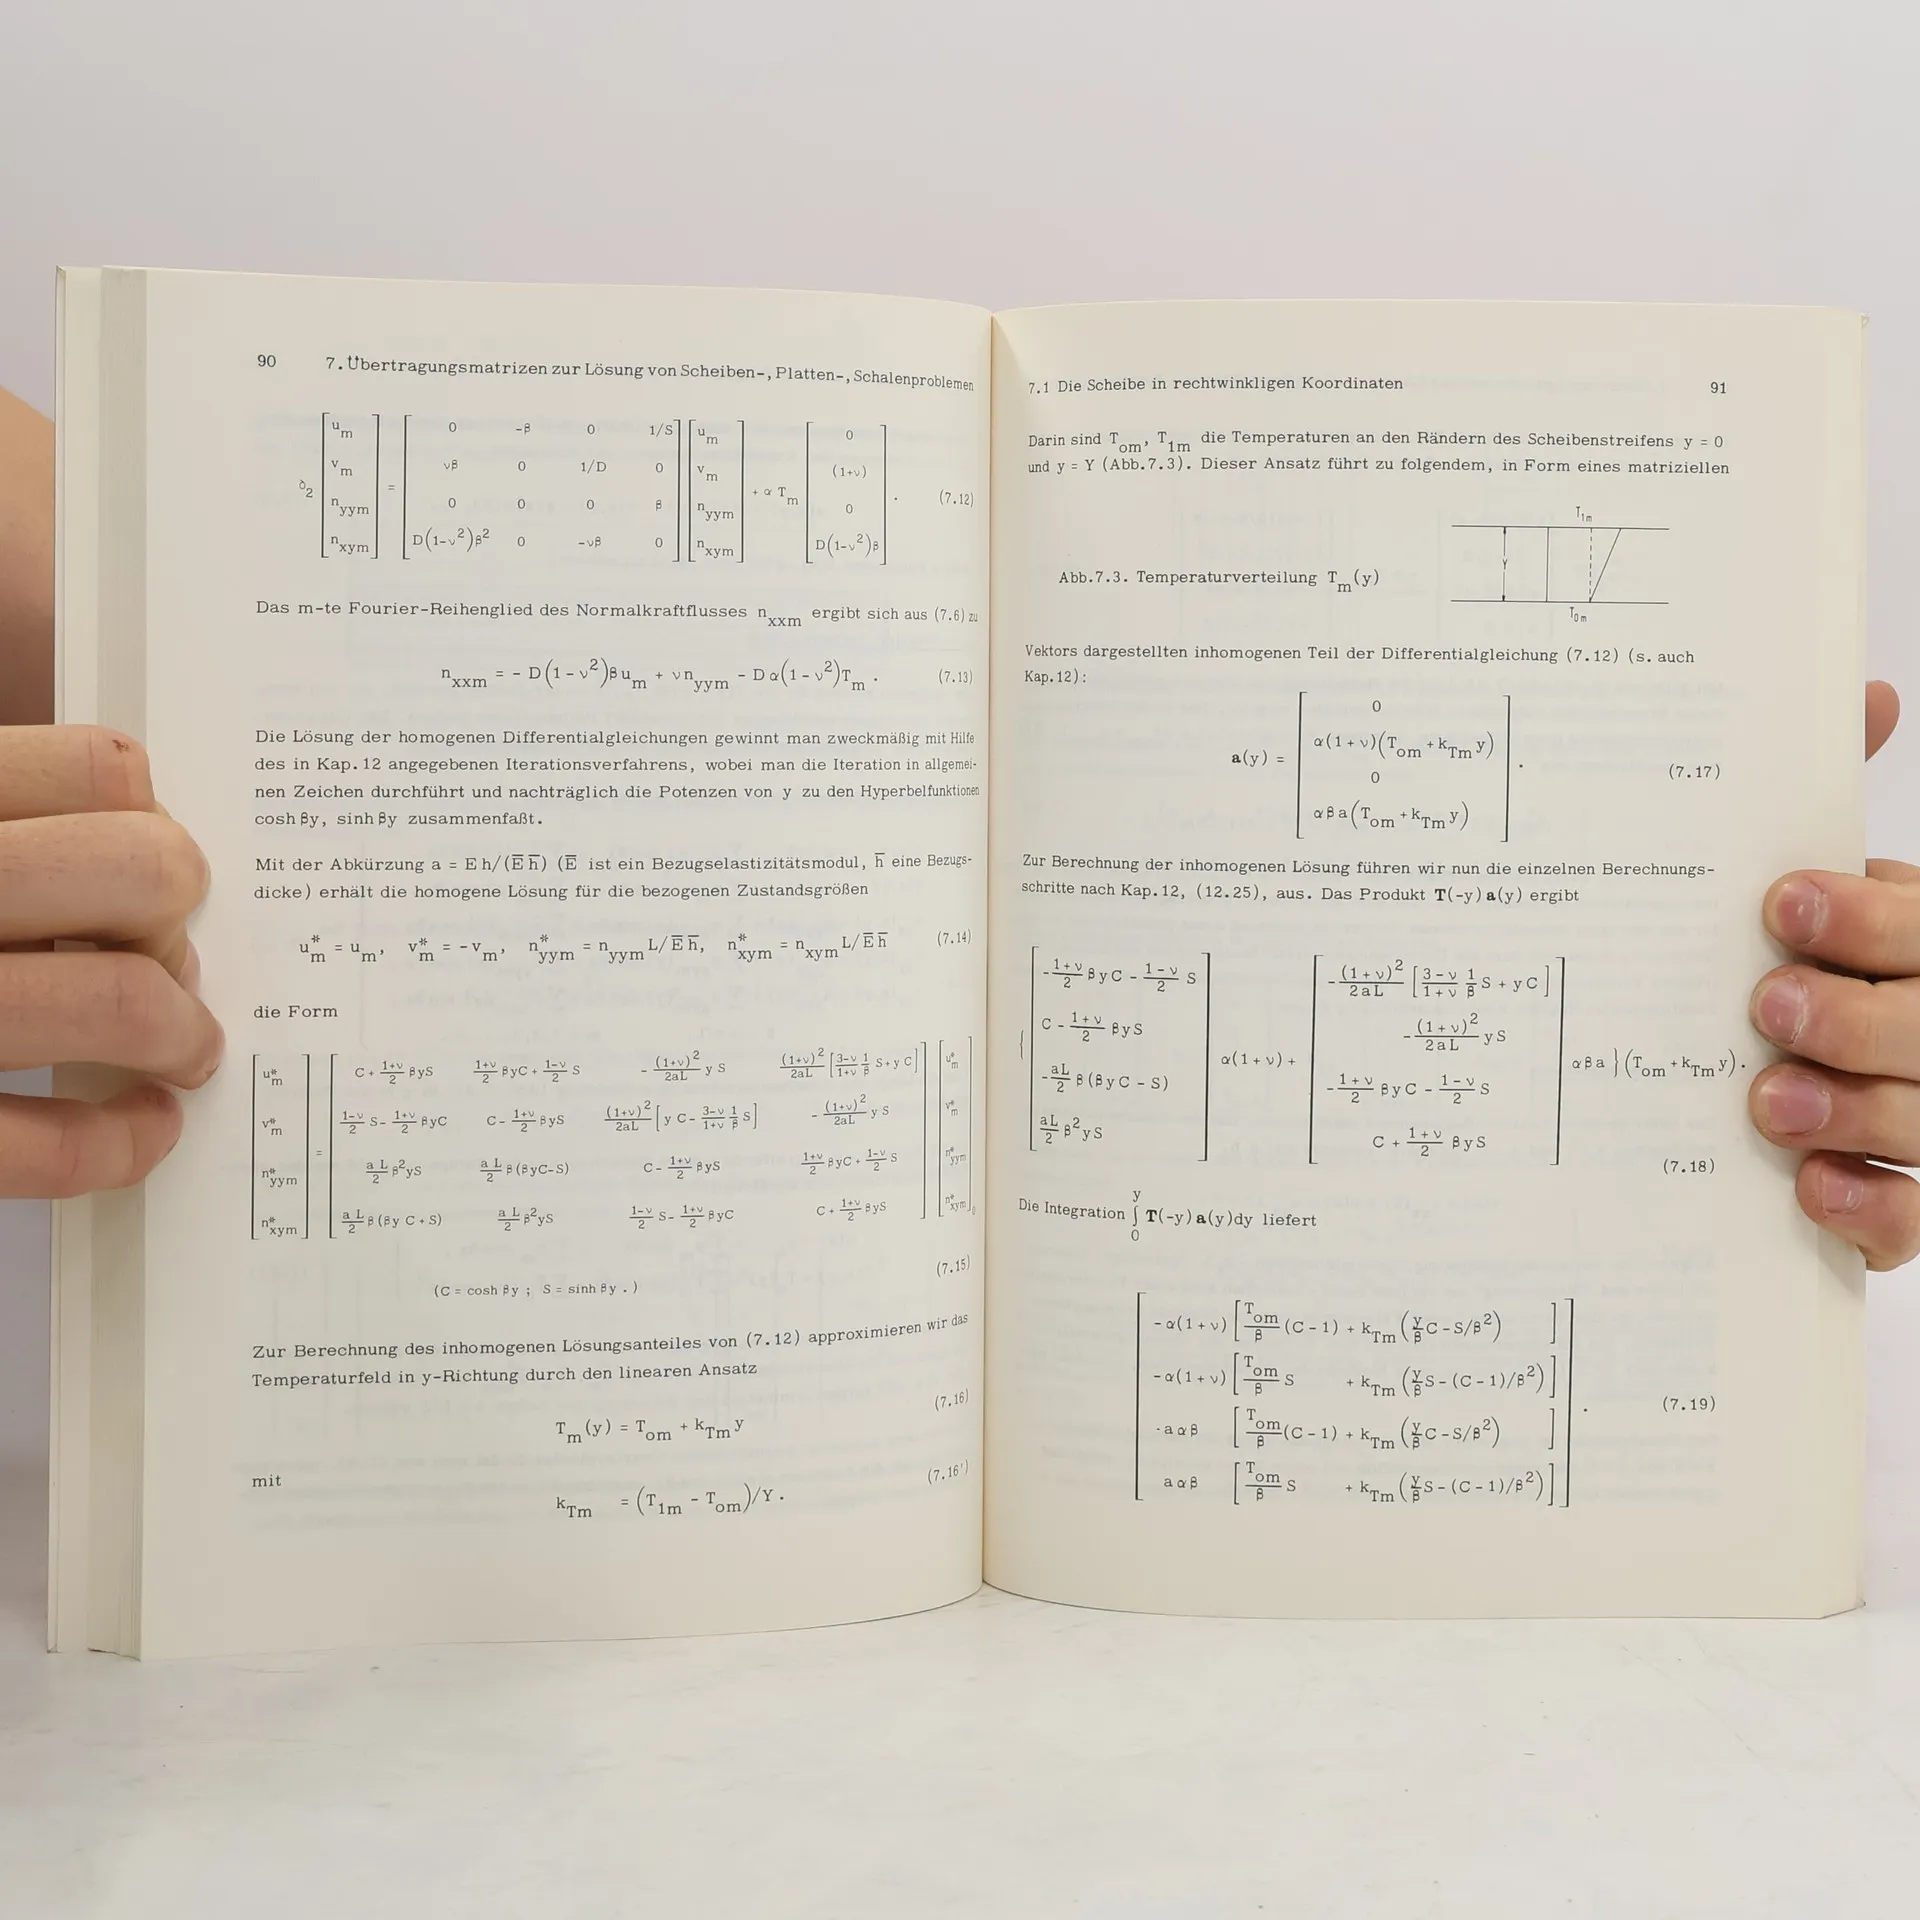 90 7. Übertragungsmatrizen zur Lösung von Scheiben-, Platten-, Schalenproblemen
∂₂ [u_m; v_m; n_yym; n_xym] = [0 -β 0 1/S; νβ 0 1/D 0; 0 0 0 β; D(1-ν²)β² 0 -νβ 0] [u_m; v_m; n_yym; n_xym] + α T_m [0; (1+ν); 0; D(1-ν²)β] . (7.12)
Das m-te Fourier-Reihenglied des Normalkraftflusses n_xxm ergibt sich aus (7.6) zu
n_xxm = - D(1 - ν²)β u_m + ν n_yym - D α(1 - ν²)T_m . (7.13)
Die Lösung der homogenen Differentialgleichungen gewinnt man zweckmäßig mit Hilfe
des in Kap. 12 angegebenen Iterationsverfahrens, wobei man die Iteration in allgemei-
nen Zeichen durchführt und nachträglich die Potenzen von y zu den Hyperbelfunktionen
cosh βy, sinh βy zusammenfaßt.
Mit der Abkürzung a = E h/(E̅ h̅) (E̅ ist ein Bezugselastizitätsmodul, h̅ eine Bezugs-
dicke) erhält die homogene Lösung für die bezogenen Zustandsgrößen
u*_m = u_m, v*_m = - v_m, n*_yym = n_yym L/E̅ h̅, n*_xym = n_xym L/E̅ h̅ (7.14)
die Form
[u*_m; v*_m; n*_yym; n*_xym] = [C + (1+ν)/2 βyS, (1+ν)/2 βyC + (1-ν)/2 S, - (1+ν)²/2aL y S, (1+ν)²/2aL [(3-ν)/(1+ν) 1/β S + y C];
(1-ν)/2 S - (1+ν)/2 βyC, C - (1+ν)/2 βyS, (1+ν)²/2aL [y C - (3-ν)/(1+ν) 1/β S], - (1+ν)²/2aL y S;
a L/2 β²yS, a L/2 β(βyC-S), C - (1+ν)/2 βyS, (1+ν)/2 βyC + (1-ν)/2 S;
a L/2 β(βy C + S), a L/2 β²yS, (1-ν)/2 S - (1+ν)/2 βyC, C + (1+ν)/2 βyS] [u*_m; v*_m; n*_yym; n*_xym]₀
(7.15)
(C = cosh βy ; S = sinh βy . )
Zur Berechnung des inhomogenen Lösungsanteiles von (7.12) approximieren wir das
Temperaturfeld in y-Richtung durch den linearen Ansatz
T_m(y) = T_om + k_Tm y (7.16)
mit
k_Tm = (T_1m - T_om)/Y . (7.16')
7.1 Die Scheibe in rechtwinkligen Koordinaten 91
Darin sind T_om, T_1m die Temperaturen an den Rändern des Scheibenstreifens y = 0
und y = Y (Abb. 7.3). Dieser Ansatz führt zu folgendem, in Form eines matriziellen
T_1m
Y
T_0m
Abb. 7.3. Temperaturverteilung T_m(y)
Vektors dargestellten inhomogenen Teil der Differentialgleichung (7.12) (s. auch
Kap. 12):
a(y) = [0; α(1 + ν)(T_om + k_Tm y); 0; α β a(T_om + k_Tm y)] . (7.17)
Zur Berechnung der inhomogenen Lösung führen wir nun die einzelnen Berechnungs-
schritte nach Kap. 12, (12.25), aus. Das Produkt T(-y) a(y) ergibt
{ [- (1+ν)/2 βyC - (1-ν)/2 S; C - (1+ν)/2 βyS; - aL/2 β(βyC - S); aL/2 β²yS] α(1 + ν) + [- (1+ν)²/2aL [(3-ν)/(1+ν) 1/β S + yC]; - (1+ν)²/2aL yS; - (1+ν)/2 βyC - (1-ν)/2 S; C + (1+ν)/2 βyS] α β a } (T_om + k_Tm y) .
(7.18)
Die Integration ∫₀^y T(-y) a(y)dy liefert
[- α(1 + ν) [T_om/β (C - 1) + k_Tm (y/β C - S/β²)];
- α(1 + ν) [T_om/β S + k_Tm (y/β S - (C - 1)/β²)];
- a α β [T_om/β (C - 1) + k_Tm (y/β C - S/β²)];
a α β [T_om/β S + k_Tm (y/β S - (C - 1)/β²)]] . (7.19)